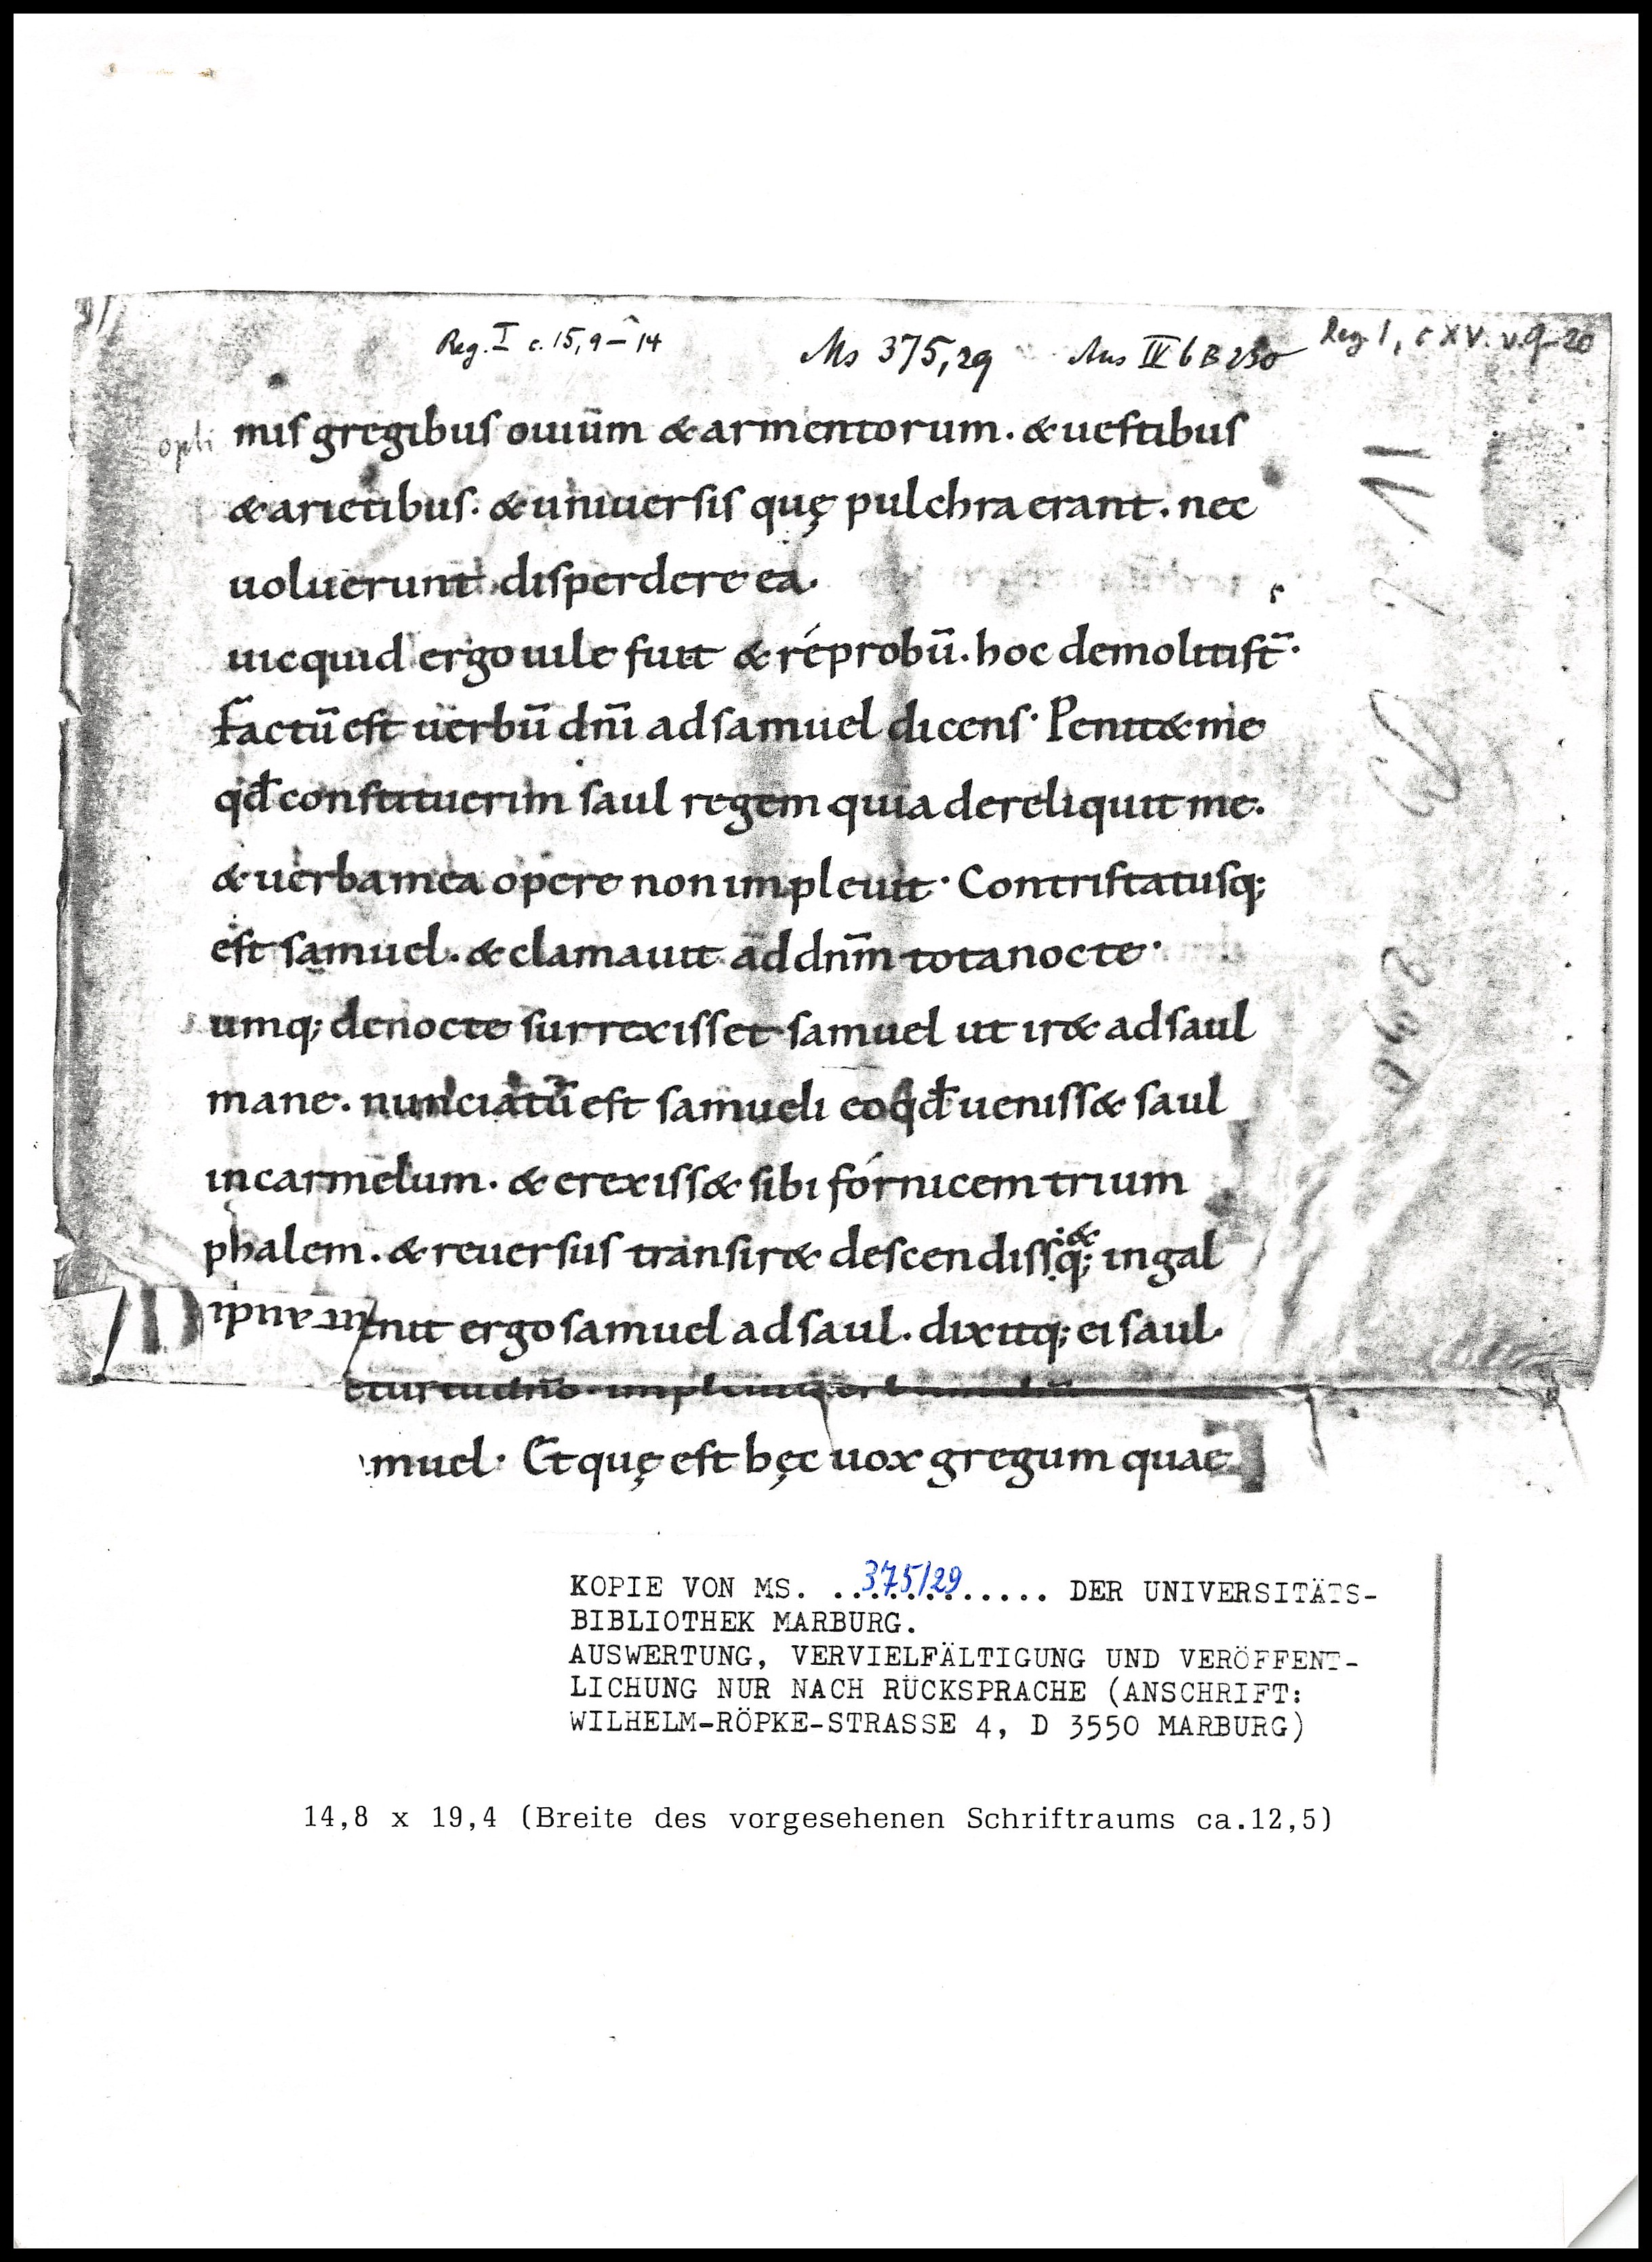 Reg. I c. 15, 9–14 Ms 375,29 Aus IV b B 230 Reg I, c XV. v. 9-20
opti mis gregibus ouiūm & armentorum. & uestibus
& arietibus: & uniuersis quę pulchra erant. nec
uoluerunt disperdere ea.
uicquid ergo uile fuit & réprobū. hoc demoliti st̄.
Factū est uerbū dn̄i ad samuel dicens. Penit& me
qđ constituerim saul regem quia dereliquit me.
& uerba mea opere non impleuit. Contristatusq;
est samuel. & clamauit ad dn̄m tota nocte.
umq; de nocte surrexisset samuel ut ir& ad saul
mane. nunciatū est samueli eo qđ ueniss& saul
in carmelum. & erexiss& sibi fórnicem trium
phalem. & reuersus transir& descendissq;& in gal
enit ergo samuel ad saul. dixitq; ei saul.
muel. Et quę est hęc uox gregum quae
KOPIE VON MS. ..375/29...... DER UNIVERSITÄTS-
BIBLIOTHEK MARBURG.
AUSWERTUNG, VERVIELFÄLTIGUNG UND VERÖFFENT-
LICHUNG NUR NACH RÜCKSPRACHE (ANSCHRIFT:
WILHELM-RÖPKE-STRASSE 4, D 3550 MARBURG)
14,8 x 19,4 (Breite des vorgesehenen Schriftraums ca.12,5)